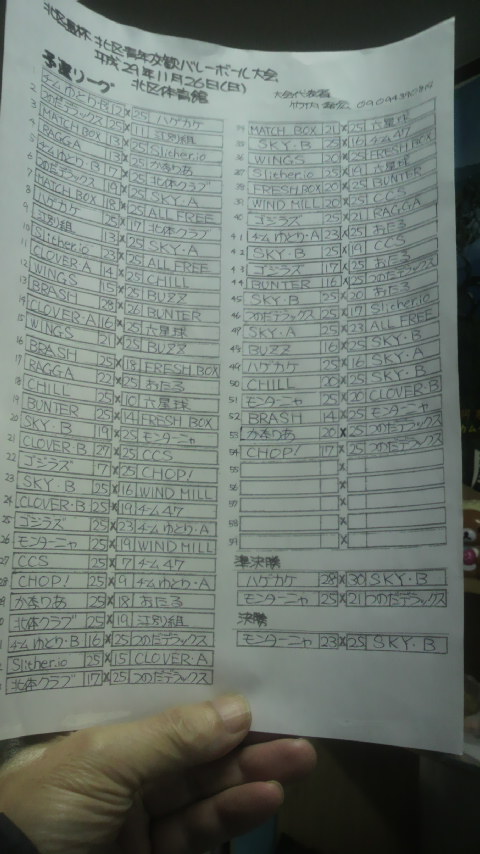 北区長杯 北区青年交歓バレーボール大会
平成29年11月26日(日)
予選リーグ 北区体育館
大会代表者
ハゲカケ
11 江別組
MATCH BOX 13 × 25 Slither.io
RAGGA 13 × 25 かまりあ
チームゆとり・B 17 × 25 北体クラブ
つのだデラックス 19 × 25 SKY・A
MATCH BOX 18 × 25 ALL FREE
ハゲカケ 25 × 17 北体クラブ
江別組 × 25 SKY・A
Slither.io 23 × 25 ALL FREE
CLOVER・A 14 × 25 CHILL
WINGS 15 × 25 BUZZ
BRASH 28 × 26 BUNTER
CLOVER・A 16 × 25 六星球
WINGS 21 × 25 BUZZ
BRASH 25 × 18 FRESH BOX
RAGGA 22 × 25 おたる
CHILL 25 × 10 六星球
BUNTER 25 × 14 FRESH BOX
SKY・B 19 × 25 モンターニャ
CLOVER B 27 × 25 CCS
ゴジラズ 17 × 25 CHOP!
SKY・B 25 × 16 WIND MILL
CLOVER・B 25 × 19 チーム47
ゴジラズ 25 × 23 チームゆとり・A
モンターニャ 25 × 19 WIND MILL
CCS 25 × 7 チーム47
CHOP! 25 × 9 チームゆとり・A
かまりあ 25 × 18 おたる
北体クラブ 25 × 19 江別組
チームゆとり・B 16 × 25 つのだデラックス
Slither.io 25 × 15 CLOVER・A
北体クラブ 17 × 25 つのだデラックス
MATCH BOX 21 × 25 六星球
SKY・B 25 × 16 チーム47
WINGS 20 × 25 FRESH BOX
Slither.io 25 × 19 六星球
FRESH BOX 20 × 25 BUNTER
WIND MILL 20 × 25 CCS
40 ゴジラズ 25 × 21 RAGGA
41 チームゆとり・A 23 × 25 おたる
42 SKY・B 25 × 19 CCS
43 ゴジラズ 17 × 25 おたる
44 BUNTER 16 × 25 つのだデラックス
45 SKY・B 25 × 20 おたる
46 つのだデラックス 25 × 17 Slither.io
47 SKY・A 25 × 23 ALL FREE
48 BUZZ 16 × 25 SKY・B
49 ハゲカケ 25 × 16 SKY・A
50 CHILL 20 × 25 SKY・B
51 モンターニャ 25 × 20 CLOVER・B
52 BRASH 14 × 25 モンターニャ
53 かまりあ 20 × 25 つのだデラックス
54 CHOP! 17 × 25 つのだデラックス
55 ×
56 ×
57 ×
58 ×
59 ×
準決勝
ハゲカケ 28 × 30 SKY・B
モンターニャ 25 × 21 つのだデラックス
決勝
モンターニャ 23 × 25 SKY・B